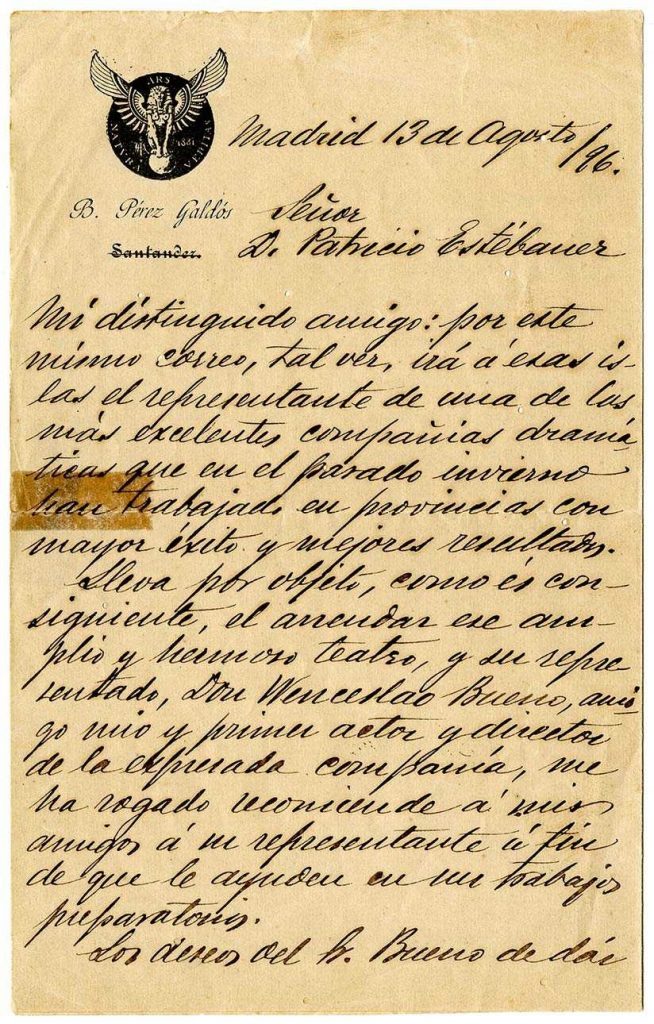 ARS
NATURA VERITAS
1881
Madrid 13 de Agosto/96.
B. Pérez Galdós
Santander.
Señor
D. Patricio Estébanez
Mi distinguido amigo: por este
mismo correo, tal vez, irá á esas is-
las el representante de una de las
más excelentes compañias dramá-
ticas que en el pasado invierno
han trabajado en provincias con
mayor éxito y mejores resultados.
Lleva por objeto, como és con-
siguiente, el arrendar ese am-
plio y hermoso teatro, y su repre-
sentado, Don Wenceslao Bueno, ami-
go mio y primer actor y director
de la expresada compañía, me
ha rogado recomiende á mis
amigos á su representante á fin
de que le ayuden en sus trabajos
preparatorios.
Los deseos del Sr. Bueno de dár